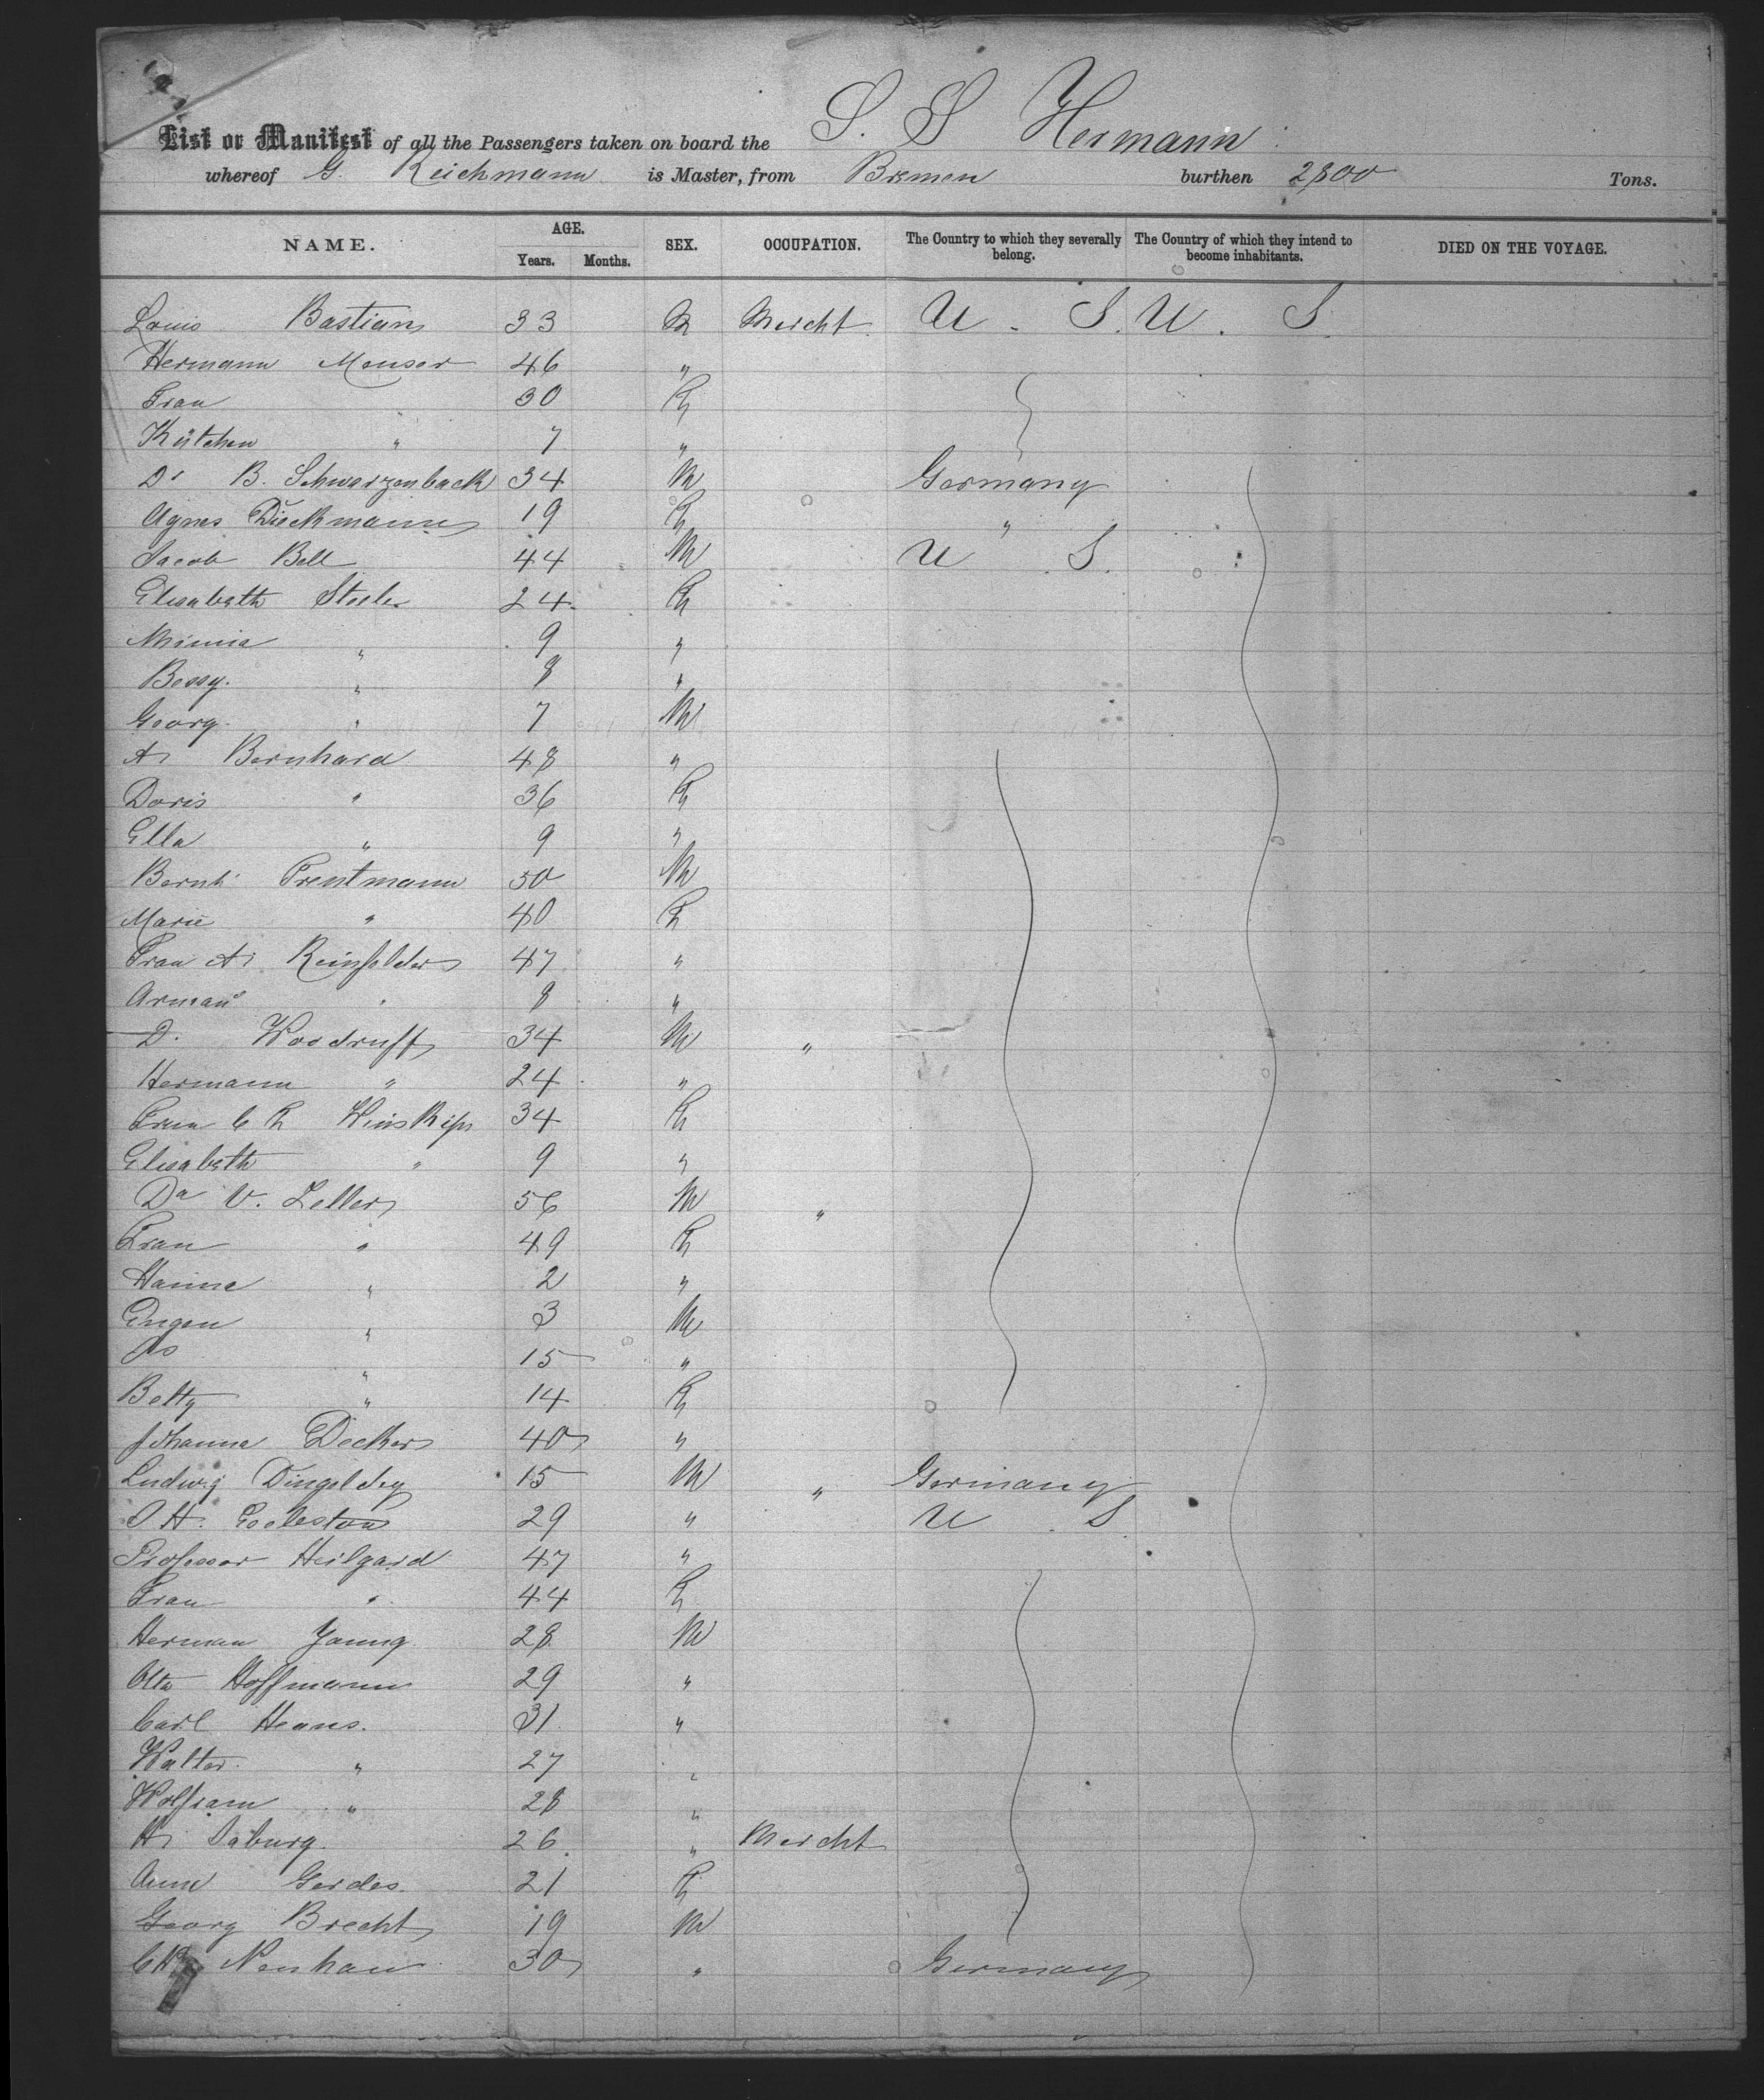 List or Manifest of all the Passengers taken on board the S. S Hermann
whereof G. Reichmann is Master, from Bremen burthen 2800 Tons.
NAME. AGE. SEX. OCCUPATION. The Country to which they severally belong. The Country of which they intend to become inhabitants. DIED ON THE VOYAGE.
Years. Months.
Louis Bastian 33 M Mercht U. S. U. S
Hermann Menser 46 "
Frau 30 F
Kätchen " 7 "
Dr B. Schwarzenbach 34 M Germany
Agnes Dieckmann 19 F "
Jacob Bell 44 M U S.
Elisabeth Steeler 24 F
Minnie " 9 "
Bessy. " 8 "
Georg " 7 M
A. Bernhard 48 "
Doris " 36 F
Ella " 9 "
Bernh Trentmann 50 M
Marie " 40 F
Frau A. Reinfelder 47 "
Arman " 8 "
D. Woodruff 34 M "
Hermann " 24 "
Frau C F Winskip 34 F
Elisabeth " 9 "
V. Zeller 56 M "
Frau " 49 F
Hanna " 2 "
Eugen " 3 M
" 15 "
Betty " 14 F
Johanna Decker 40 "
Ludwig Dingeldey 15 M " Germany
H. Eccleston 29 " U. S.
Professor Heilgard 47 "
Frau " 44 F
Herman Young 28 M
Otto Hoffmann 29 "
Carl Heans. 31 "
Walter " 27 "
Wolfram " 28 "
H. Jaburg 26. " Mercht
Anne Gerdes. 21 F
Georg Brecht 19 M
Neuhaus 30 " Germany